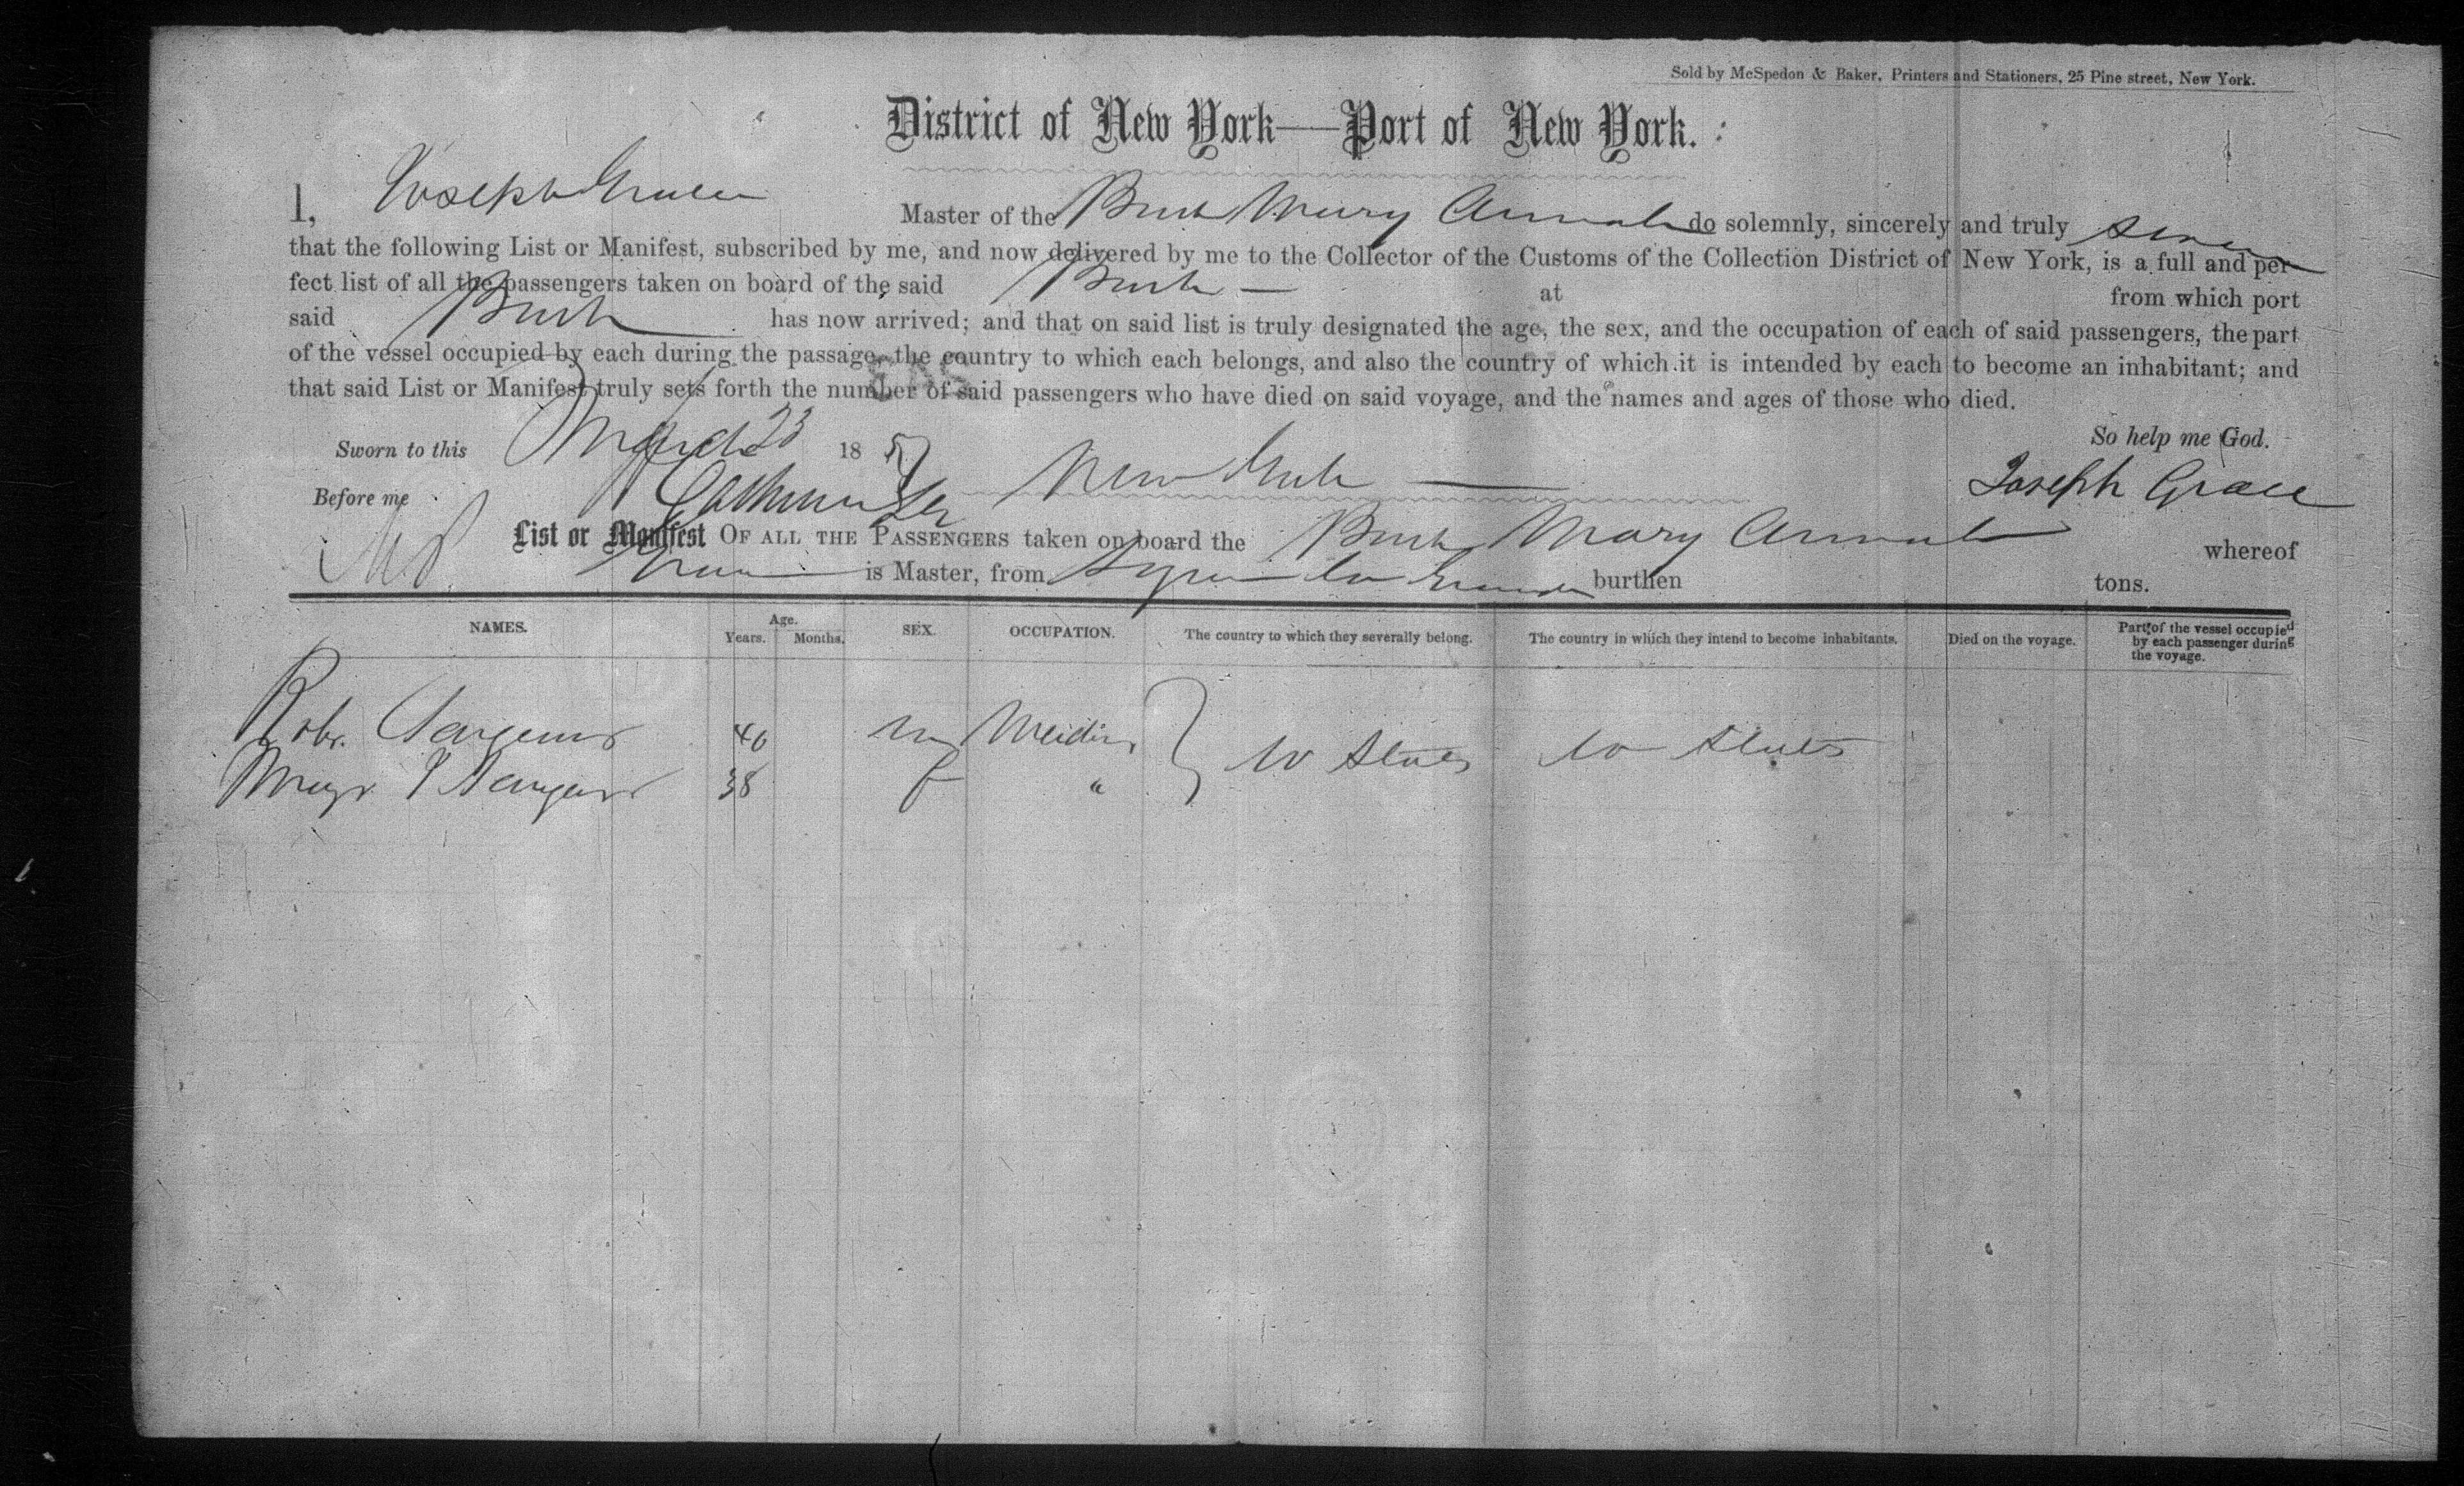 Sold by McSpedon & Baker, Printers and Stationers, 25 Pine street, New York.
District of New York—Port of New York.
I, Joseph Grace Master of the Mary do solemnly, sincerely and truly swear
that the following List or Manifest, subscribed by me, and now delivered by me to the Collector of the Customs of the Collection District of New York, is a full and per-
fect list of all the passengers taken on board of the said at from which port
said has now arrived; and that on said list is truly designated the age, the sex, and the occupation of each of said passengers, the part
of the vessel occupied by each during the passage, the country to which each belongs, and also the country of which it is intended by each to become an inhabitant; and
that said List or Manifest truly sets forth the number of said passengers who have died on said voyage, and the names and ages of those who died.
So help me God.
Sworn to this March 23 1857
Before me New York Joseph Grace
List or Manifest OF ALL THE PASSENGERS taken on board the Mary whereof
is Master, from burthen tons.
NAMES. Age. Years. Months. SEX. OCCUPATION. The country to which they severally belong. The country in which they intend to become inhabitants. Died on the voyage. Part of the vessel occupied by each passenger during the voyage.
Robt. 40 m U States U States
38 f "